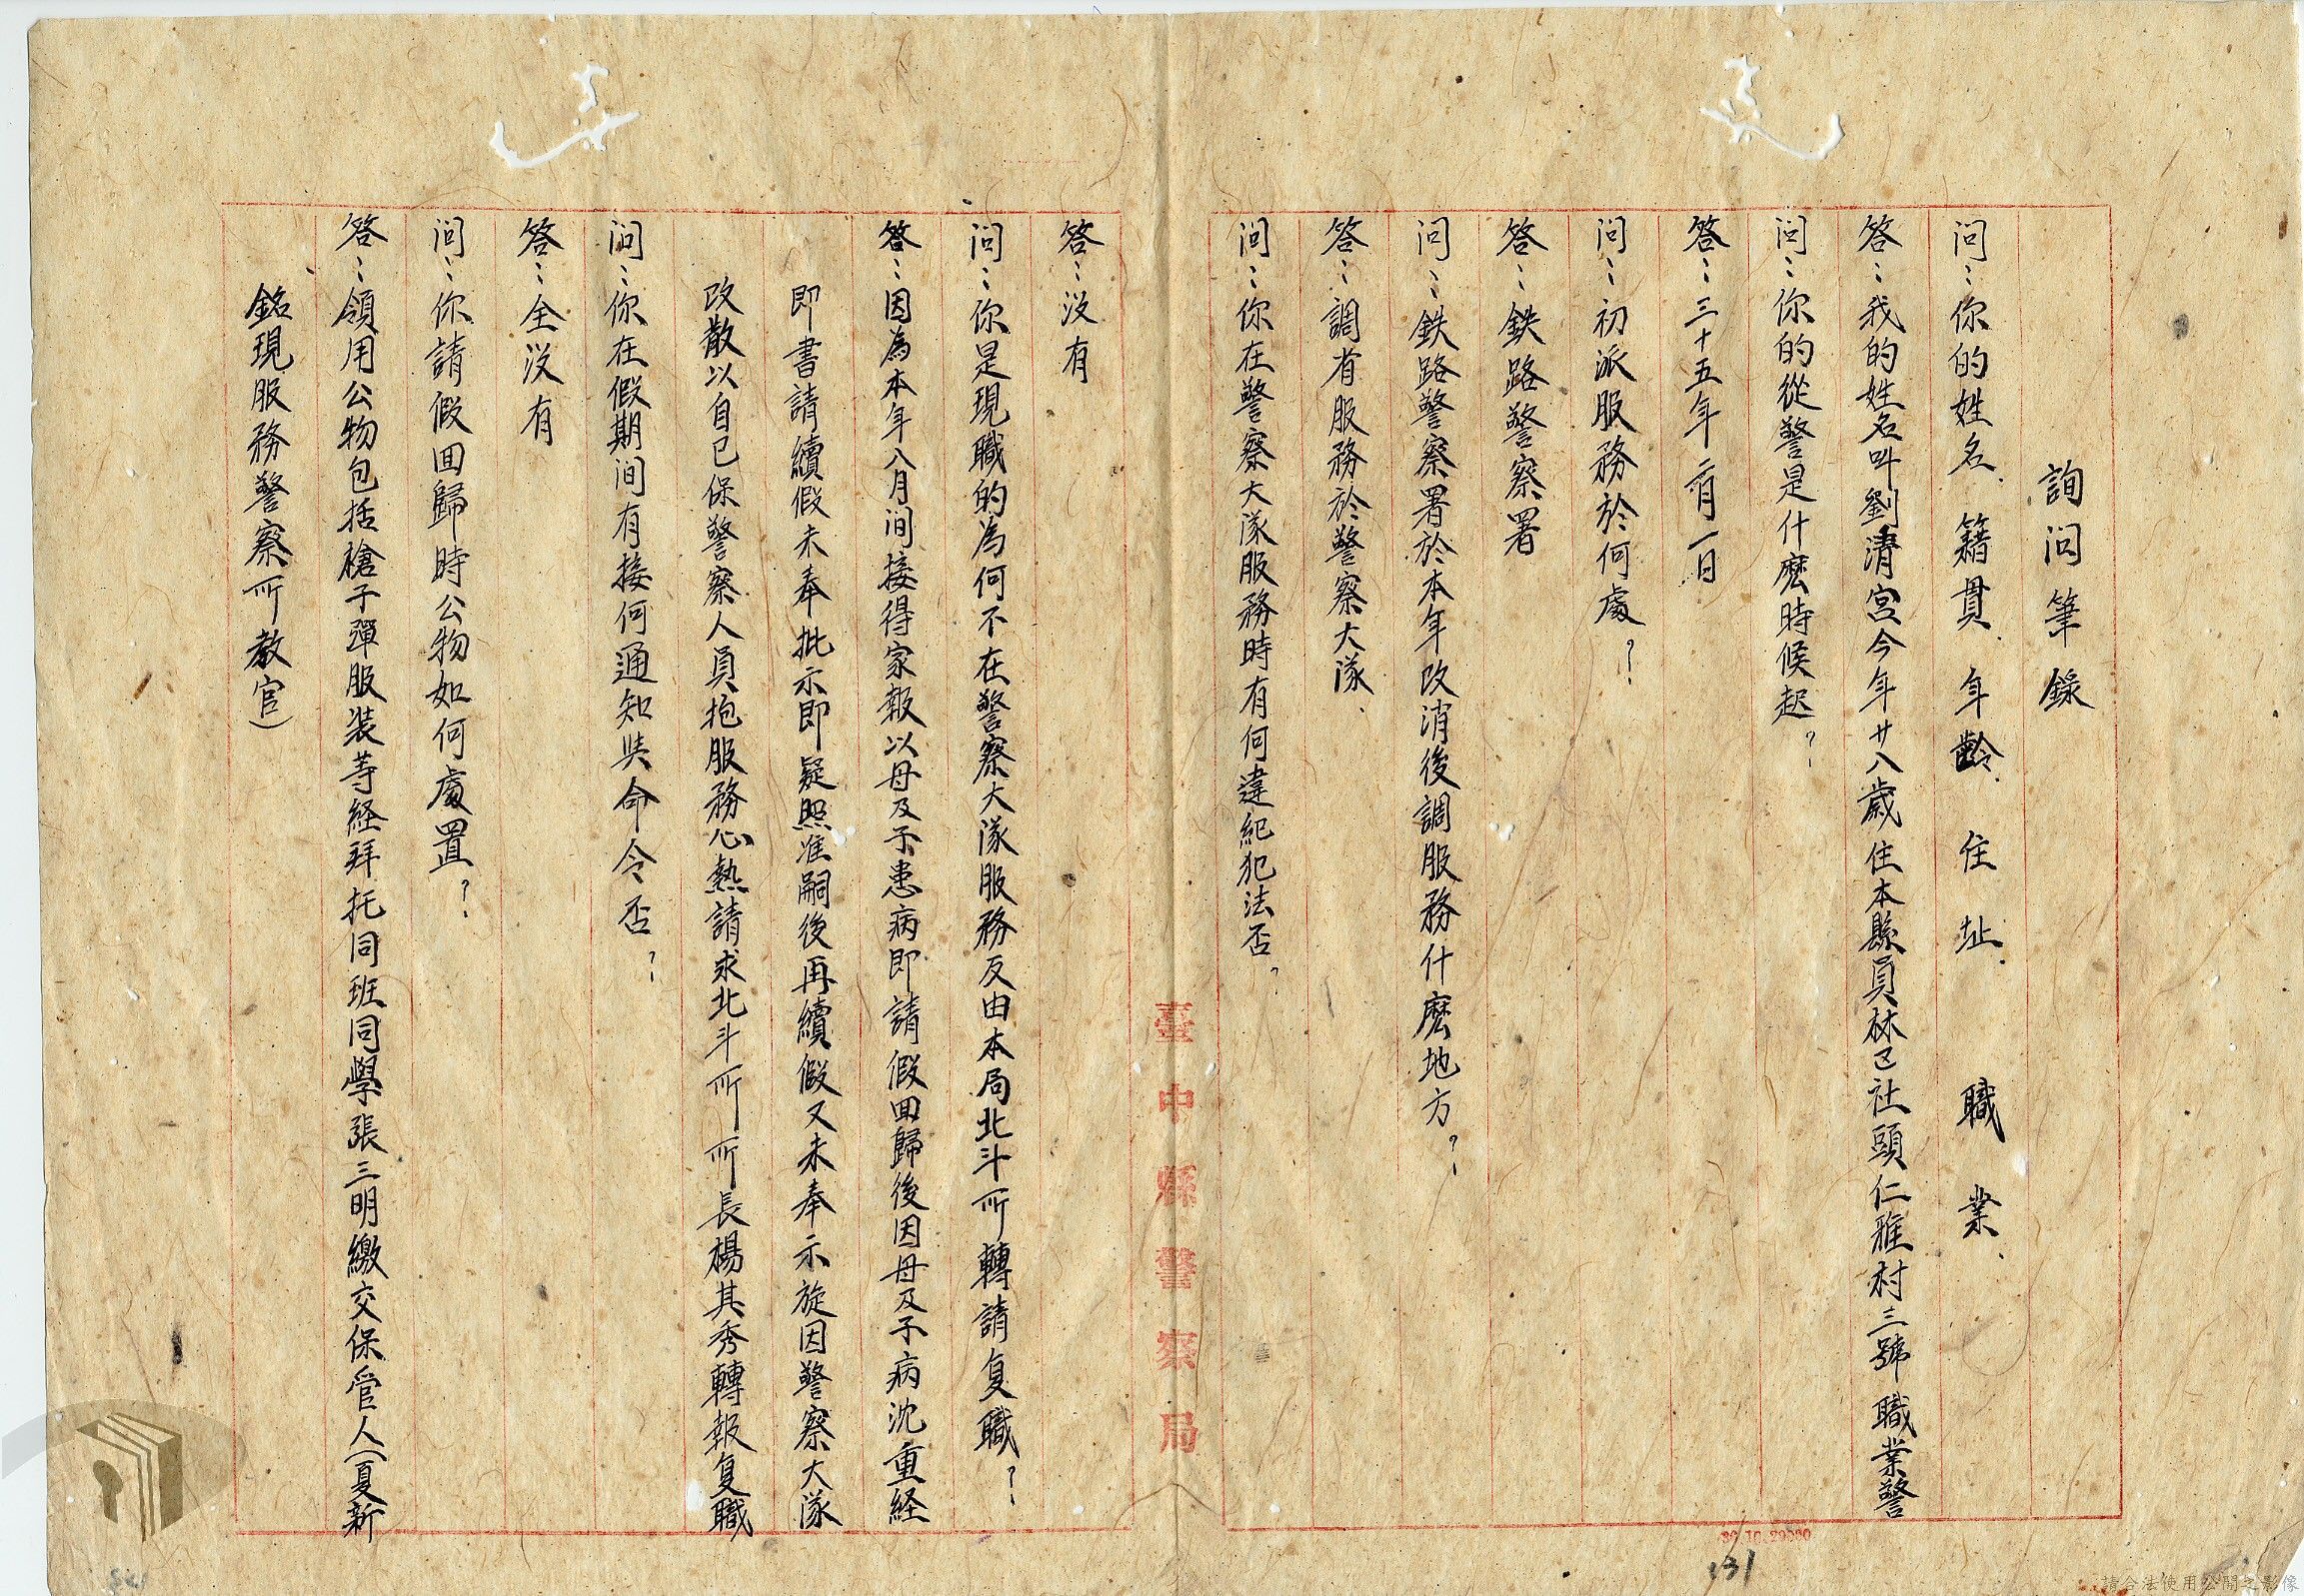 詢问筆錄
问：你的姓名、籍貫、年齡、住址、職業、
答：我的姓名叫劉清宮今年廿八歲住本縣員林区社頭仁雅村三號職業警
问：你的從警是什麼時候起？
答：三十五年二月一日
问：初派服務於何處？
答：鉄路警察署
问：鉄路警察署於本年改消後調服務什麼地方？
答：調省服務於警察大隊、
问：你在警察大隊服務時有何違紀犯法否？
答：沒有
问：你是現職的為何不在警察大隊服務反由本局北斗所轉請复職？
答：因為本年八月间接得家報以母及予患病即請假回歸後因母及予病沈重経
即書請續假未奉批示即疑照准嗣後再續假又未奉示旋因警察大隊
改散以自己保警察人員抱服務心熱請求北斗所所長楊其秀轉報复職
问：你在假期间有接何通知與命令否？
答：全沒有
问：你請假回歸時公物如何處置？
答：領用公物包括槍子彈服装等経拜托同班同學張三明繳交保管人（夏新
銘現服務警察所教官）
臺中縣警察局
36.10.29000
131
請合法使用公開之影像